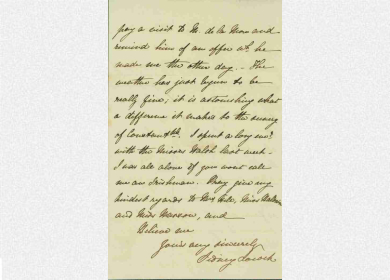 pay a visit to M. de la
remind him of an offer wh. he
made me the other day. The
weather has just begun to be
really fine; it is astonishing what
a difference it makes to the
of I spent a
with the Misses Walsh last week.
I was all alone if you wont call
me an Irishman. Pray give my
kindest regards to Mrs Miss
and Miss and
Believe me
Yours very sincerely
Sidney Locock